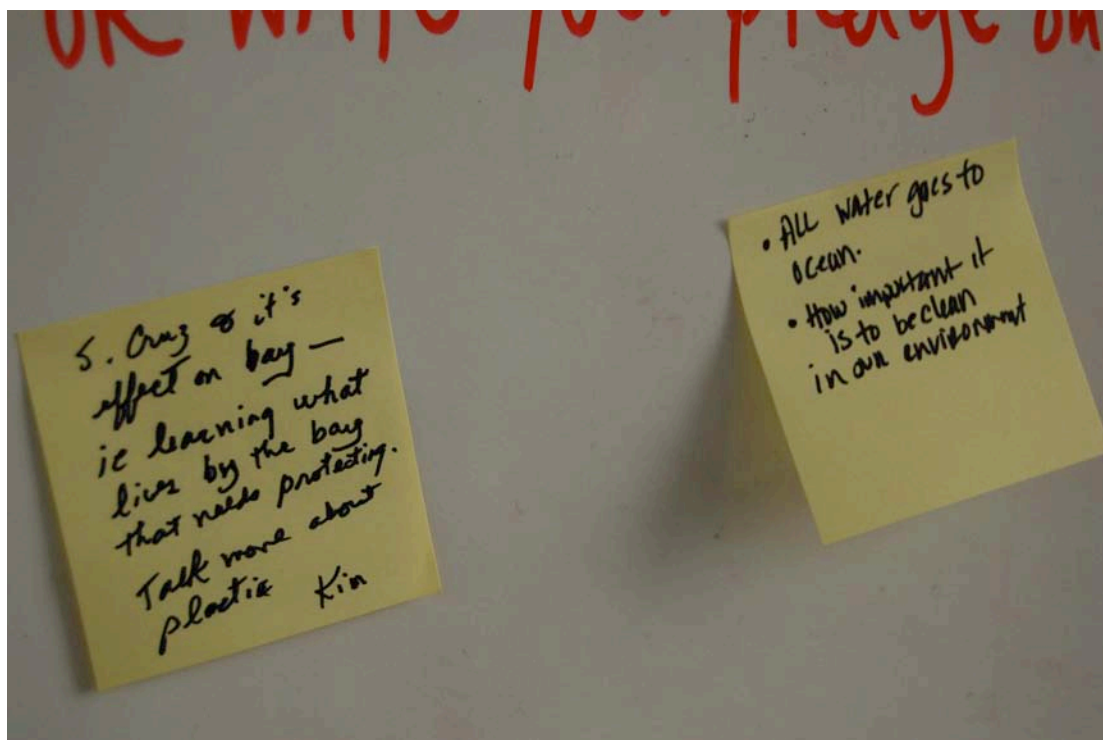 OR WRITE your pledge on
S. Cruz & it's
effect on bay —
ie learning what
lives by the bay
that needs protecting.
Talk more about
plastic Kim
• ALL water goes to
ocean.
• How important it
is to be clean
in our environment